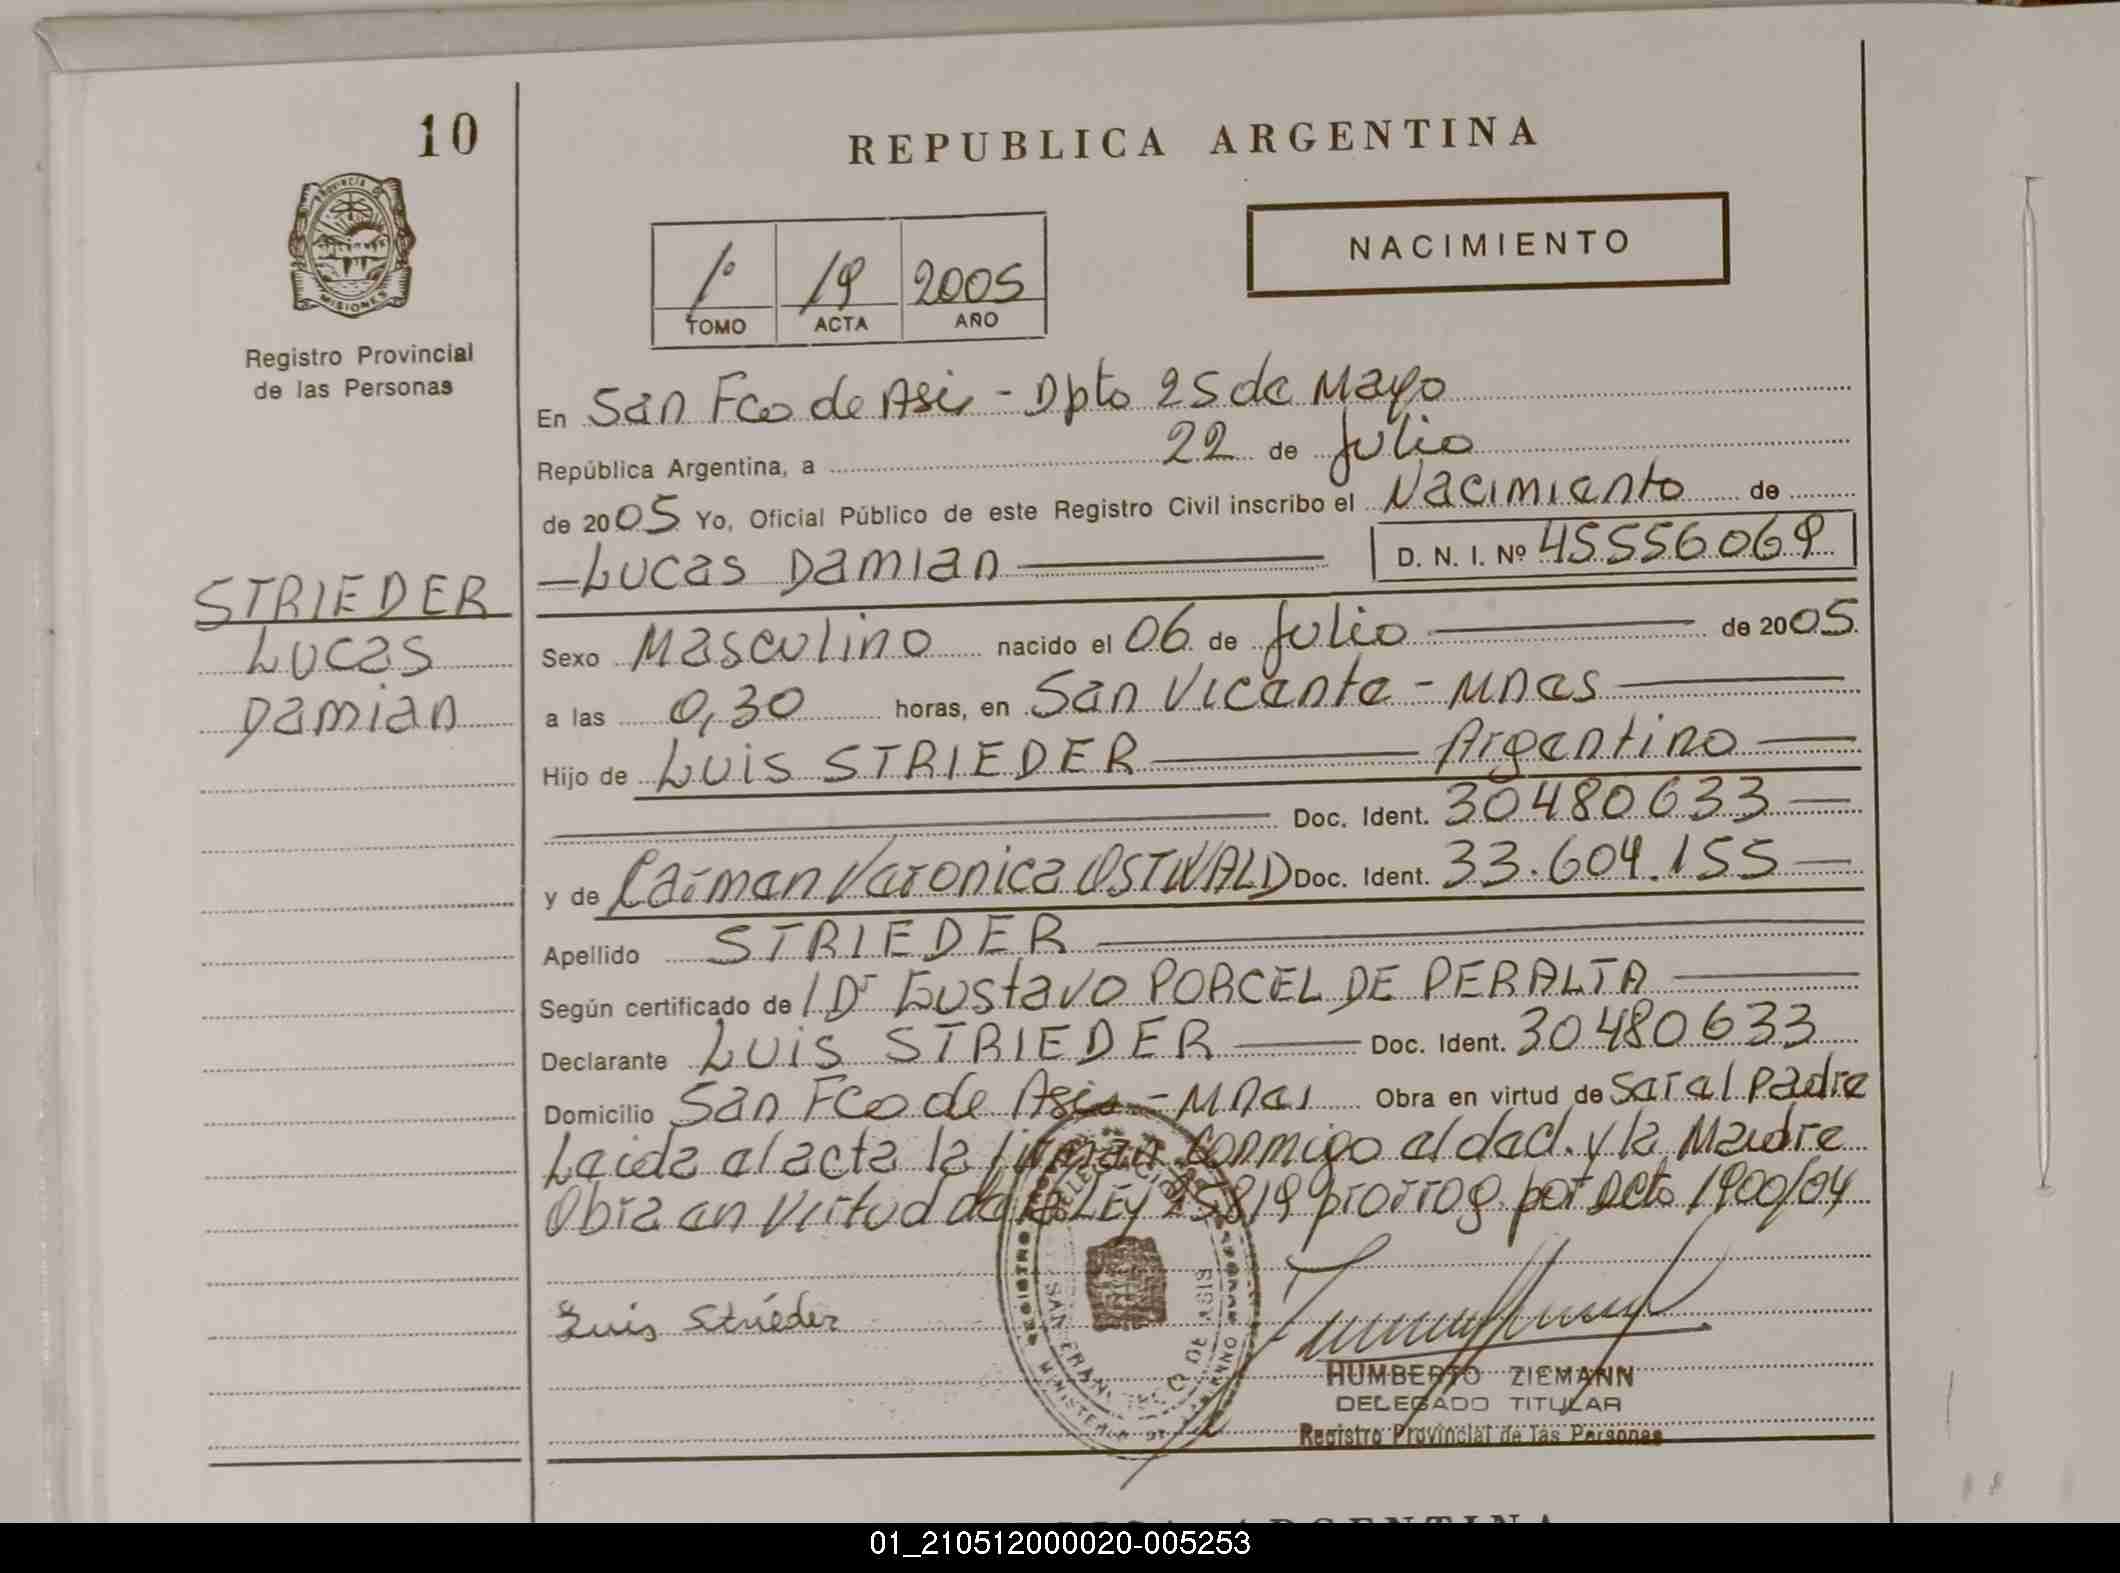 10
REPUBLICA ARGENTINA
PROVINCIA DE
MISIONES
Registro Provincial
de las Personas
NACIMIENTO
1º 19 2005
TOMO ACTA AÑO
En San Fco de Asis - Dpto 25 de Mayo
República Argentina, a 22 de Julio
de 2005 Yo, Oficial Público de este Registro Civil inscribo el Nacimiento de
Lucas Damian D. N. I. Nº 45556069
STRIEDER
Lucas
Damian
Sexo Masculino nacido el 06 de Julio de 2005
a las 0,30 horas, en San Vicente - Mnes
Hijo de Luis STRIEDER Argentino
Doc. Ident. 30480633
y de Carmen Veronica OSTWALD Doc. Ident. 33.604.155
Apellido STRIEDER
Según certificado de Dr Gustavo PORCEL DE PERALTA
Declarante Luis STRIEDER Doc. Ident. 30480633
Domicilio San Fco de Asis - Mnes Obra en virtud de Ser el padre
Leida el acta la firman conmigo el decl. y la Madre
Obra en Virtud de la LEy 25819 prorrog. por Dcto 1900/04
Luis Strieder
SAN FRANCISCO DE ASIS
HUMBERTO ZIEMANN
DELEGADO TITULAR
Registro Provincial de las Personas
01_210512000020-005253